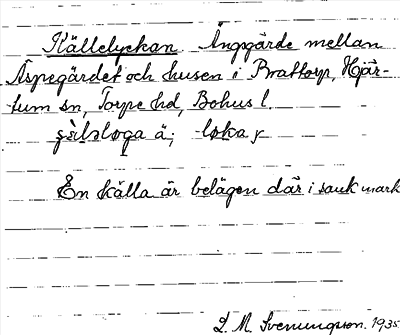 Källelyckan Ängsgärde mellan
Äspegärdet och husen i Brattorp, Hjär-
tum sn, Torpe hd, Bohus l.
En källa är belägen där i sank mark
D. M. Svenungsson. 1935